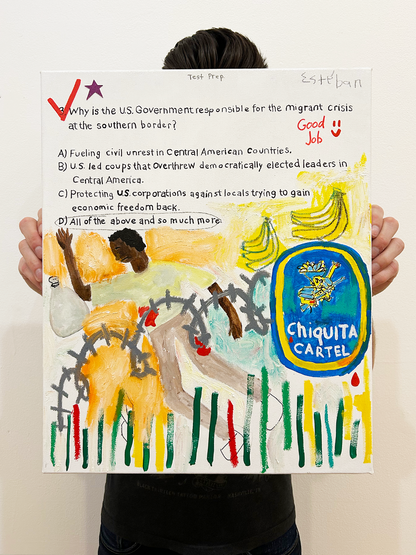 Test Prep
Estéban
8. Why is the U.S. Government responsible for the migrant crisis
at the southern border?
Good
Job
A) Fueling civil unrest in Central American Countries.
B) U.S. led coups that overthrew democratically elected leaders in
Central America.
C) Protecting U.S. corporations against locals trying to gain
economic freedom back.
D) All of the above and so much more.
CHiQUiTA
CARTEL